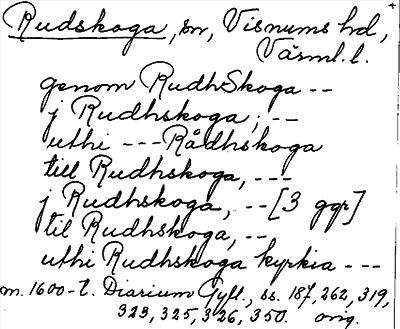 Rudskoga, sn, Visnums hd,
Värml. l.
genom RudhSkoga --
j Rudhskoga, --
uthi --- Rådhskoga
till Rudhskoga, ---
j Rudhskoga, -- [3 ggr]
til Rudhskoga, --
uthi Rudhskoga kyrkia ---
m. 1600-t. Diarium Gyll., ss. 187, 262, 319,
323, 325, 326, 350. orig.